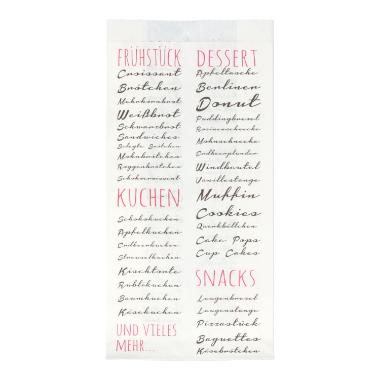 FRÜHSTÜCK
Croissant
Brötchen
Mehrkornbrot
Weißbrot
Schwarzbrot
Sandwiches
Belegte Brötchen
Mohnbrötchen
Roggenbrötchen
Schokocroissant
KUCHEN
Schokokuchen
Apfelkuchen
Erdbeerkuchen
Streuselkuchen
Kirschtorte
Rüblikuchen
Baumkuchen
Käsekuchen
UND VIELES
MEHR...
DESSERT
Apfeltasche
Berliner
Donut
Puddingbrezel
Rosinenschnecke
Mohnschnecke
Erdbeerplunder
Windbeutel
Vanillestange
Muffin
Cookies
Quarkbällchen
Cake Pops
Cup Cakes
SNACKS
Laugenbrezel
Laugenstange
Pizzastück
Baguettes
Käsebrötchen